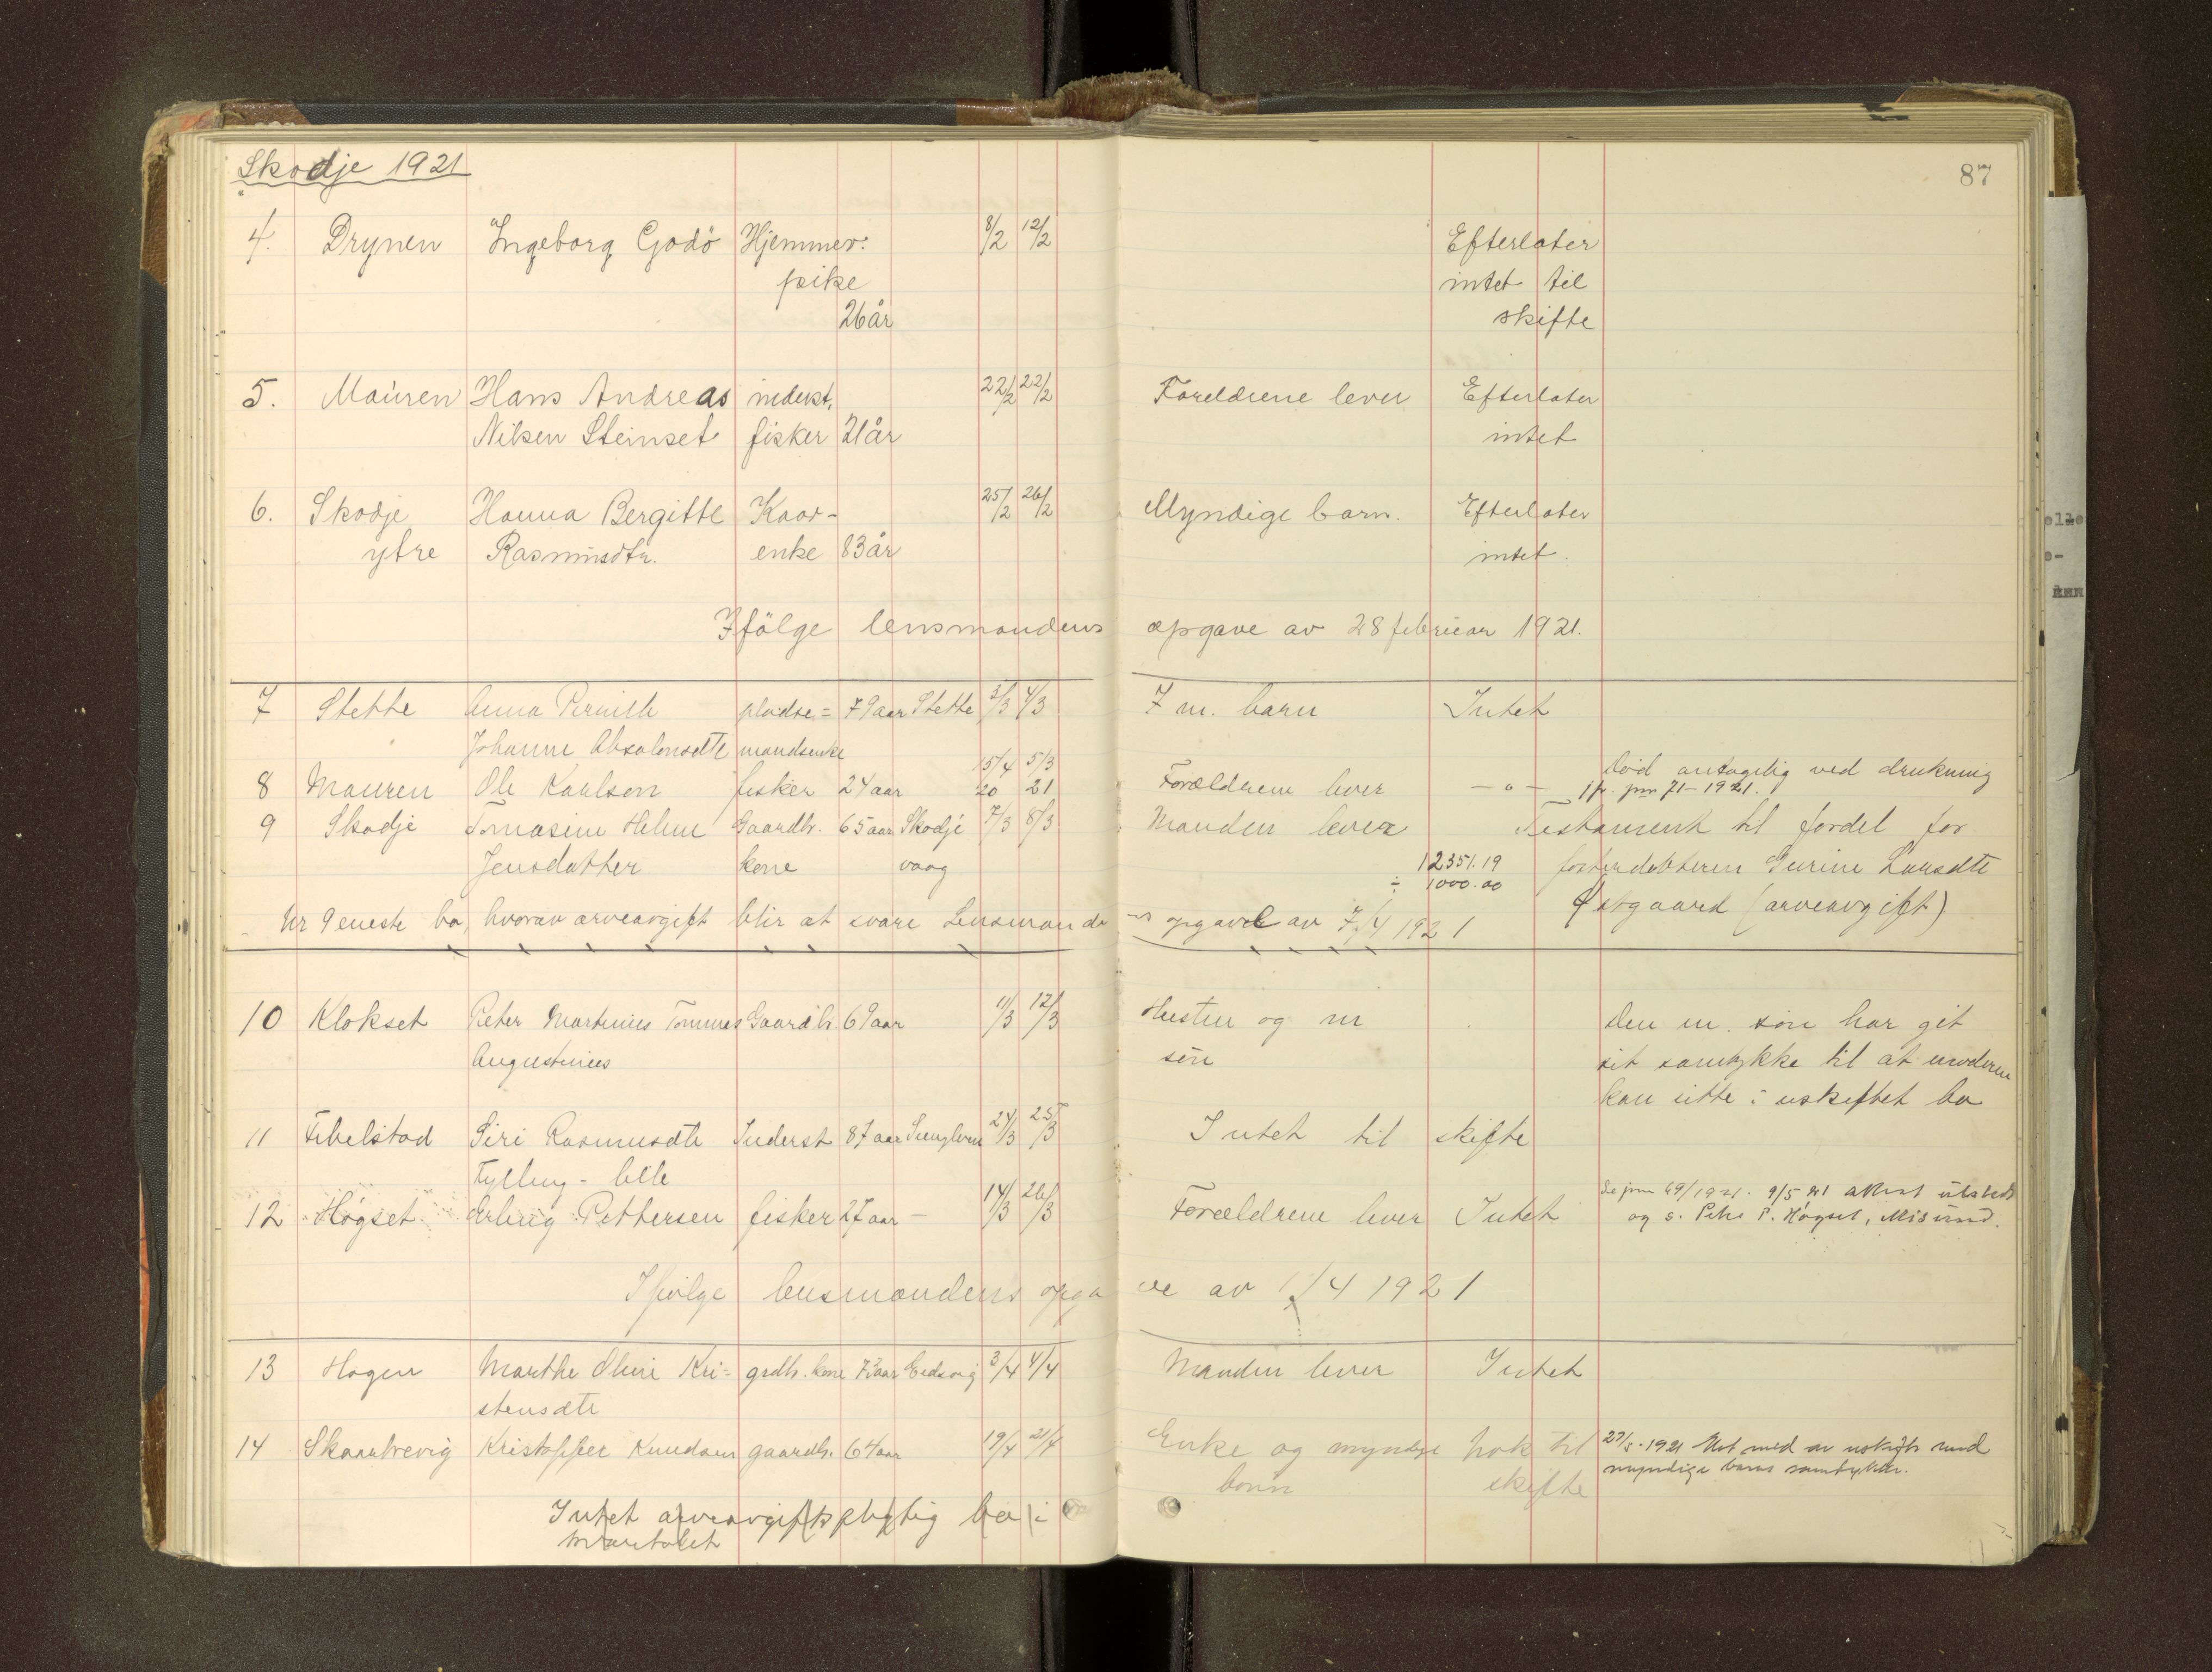 Skodje 1921
87
4. Drynen Ingeborg Godö Hjemmev: 8/2 12/2 Efterlater
pike intet til
26 år skifte
5. Mauren Hans Andreas inderst, 22/2 22/2 Foreldrene lever Efterlater
Nilsen Steinset fisker 21 år intet
6. Skodje Hanna Bergitte Kaar- 25/2 26/2 Myndige barn. Efterlater
ytre Rasmusdtr. enke 83 år intet.
Ifölge lensmandens opgave av 28 februar 1921.
7 Stette Anna Pernille pladse= 79 aar Stette 3/3 4/3 7 m. barn Intet
Johanne Absalonsdtr mandsenke
8 Mauren Ole Karlsen fisker 24 aar 15/4 20 5/3 21 Forældrene lever — " — Död antagelig ved drukning
jfr. jnr 71-1921.
9 Skodje Tomasine Heline Gaardbr. 65 aar Skodje 7/3 8/3 Manden lever Testament til fordel for
Jensdatter kone vaag 12351.19 fosterdatteren Gurine Larsdtr
÷ 1000.00 Østgaard (arveavgift)
Nr 9 eneste bo, hvorav arveavgift blir at svare Lensmandens opgave av 7/4 1921
10 Klokset Peter Martinus Tommas Gaardb. 69 aar 11/3 12/3 Hustru og m Den m. sön har git
Augustinus sön sit samtykke til at moderen
kan sitte i uskiftet bo
11 Fihelstad Siri Rasmusdtr Inderst 87 aar 24/3 25/3 Intet til skifte
Fylling - lille
12 Høgset Erling Pettersen fisker 27 aar — 14/3 26/3 Forældrene lever Intet Se jnr 69/1921. 9/5 21 attest utstedt
og s. P. Høgset, Misund.
Ifölge lensmandens opgave av 1/4 1921
13 Hagen Marthe Oline Kri= grdbr. kone 73 aar Eidsvig 3/4 4/4 Manden lever Intet
stensdtr
14 Skaarbrevig Kristoffer Knudsen gaardb. 64 aar 19/4 21/4 Enke og myndige nok til 27/5-1921 uskifte med
barn skifte myndige barns samtykke.
Intet arveavgiftspligtig bo i